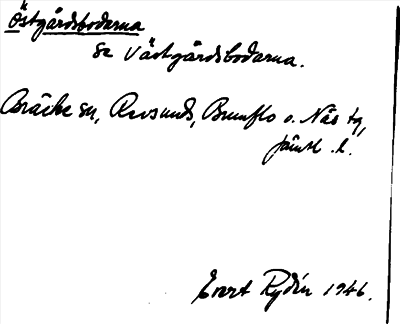 Östgårdsbodarna
se Västgårdsbodarna.
Bräcke sn, Revsunds, Brunflo o. Näs tg,
Jämtl. l.
Evert Rydén 1946.